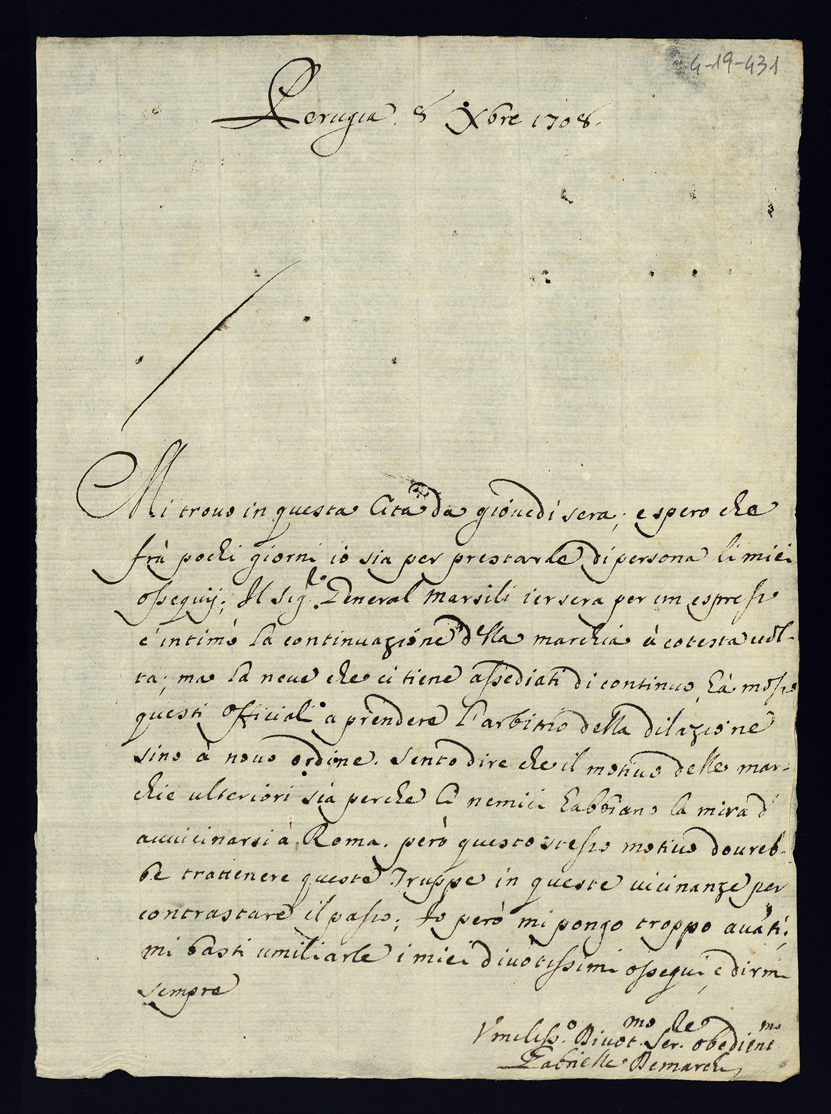 4-19-431
Perugia 8 Xbre 1708.
Mi trouo in questa Cità da giouedi sera; e spero che
frà pochi giorni io sia per prestarle di persona li miei
ossequij; Il Sig.re General Marsili iersera per un espresso
c'intimò la continuazione della marchia à cotesta uol-
ta; ma la neue che ci tiene assediati di continuo, hà mosso
questi officiali a prendere l'arbitrio della dilazione
sino à nouo ordine. Sento dire che il motiuo delle mar-
chie ulteriori sia perche li nemici habbiano la mira d'
auuicinarsi à Roma. però questo stesso motiuo doureb-
be trattenere queste Truppe in queste uicinanze per
contrastare il passo; Io però mi pongo troppo auãti;
mi basti umiliarle i miei diuotissimi ossequi, e dirmi
sempre
Vmiliss.o Diuot.mo Ser.re obedient.mo
Gabrielle Demarchi